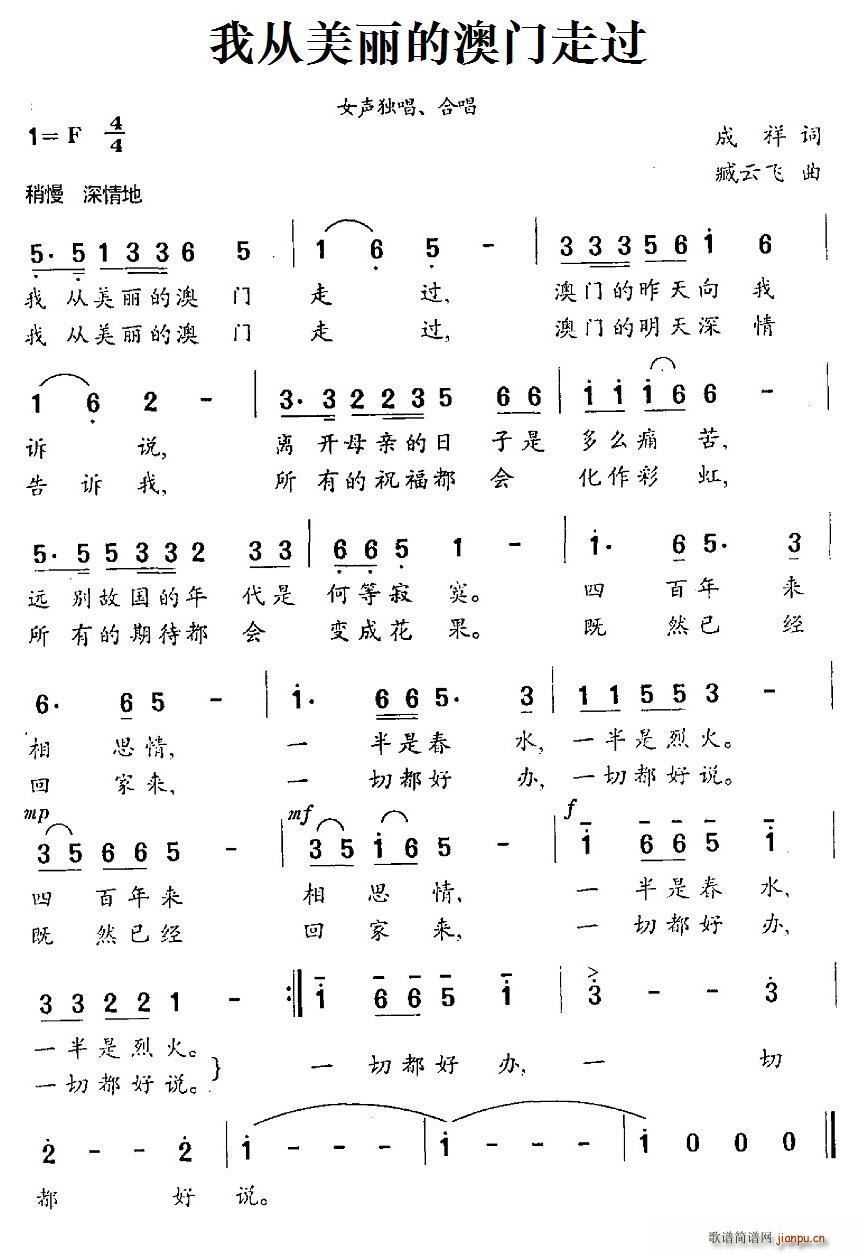 我从美丽的澳门走过
女声独唱、合唱
1=F 4/4
成祥词
臧云飞 曲
稍慢 深情地
5· 5 1 3 3 6 5 | 1 6 5 - | 3 3 3 5 6 i 6 |
我从美丽的澳门走过,澳门的昨天向我
我从美丽的澳门走过,澳门的明天深情
1 6 2 - | 3· 3 2 2 3 5 6 6 | i i i 6 6 - |
诉说,离开母亲的日子是多么痛苦,
告诉我,所有的祝福都会化作彩虹,
5· 5 5 3 3 2 3 3 | 6 6 5 1 - | i· 6 5· 3 |
远别故国的年代是何等寂寞。四百年来
所有的期待都会变成花果。既然已经
6· 6 5 - | i· 6 6 5· 3 | 1 1 5 5 3 - |
相思情,一半是春水,一半是烈火。
回家来,一切都好办,一切都好说。
mp mf f
3 5 6 6 5 - | 3 5 i 6 5 - | i 6 6 5 i |
四百年来相思情,一半是春水,
既然已经回家来,一切都好办,
3 3 2 2 1 - :| i 6 6 5 i | 3 - - 3 |
一半是烈火。
一切都好说。} 一切都好办,一切
2 - - 2 | i - - - | i - - - | i 0 0 0 ||
都好说。
歌谱简谱网 jianpu.cn